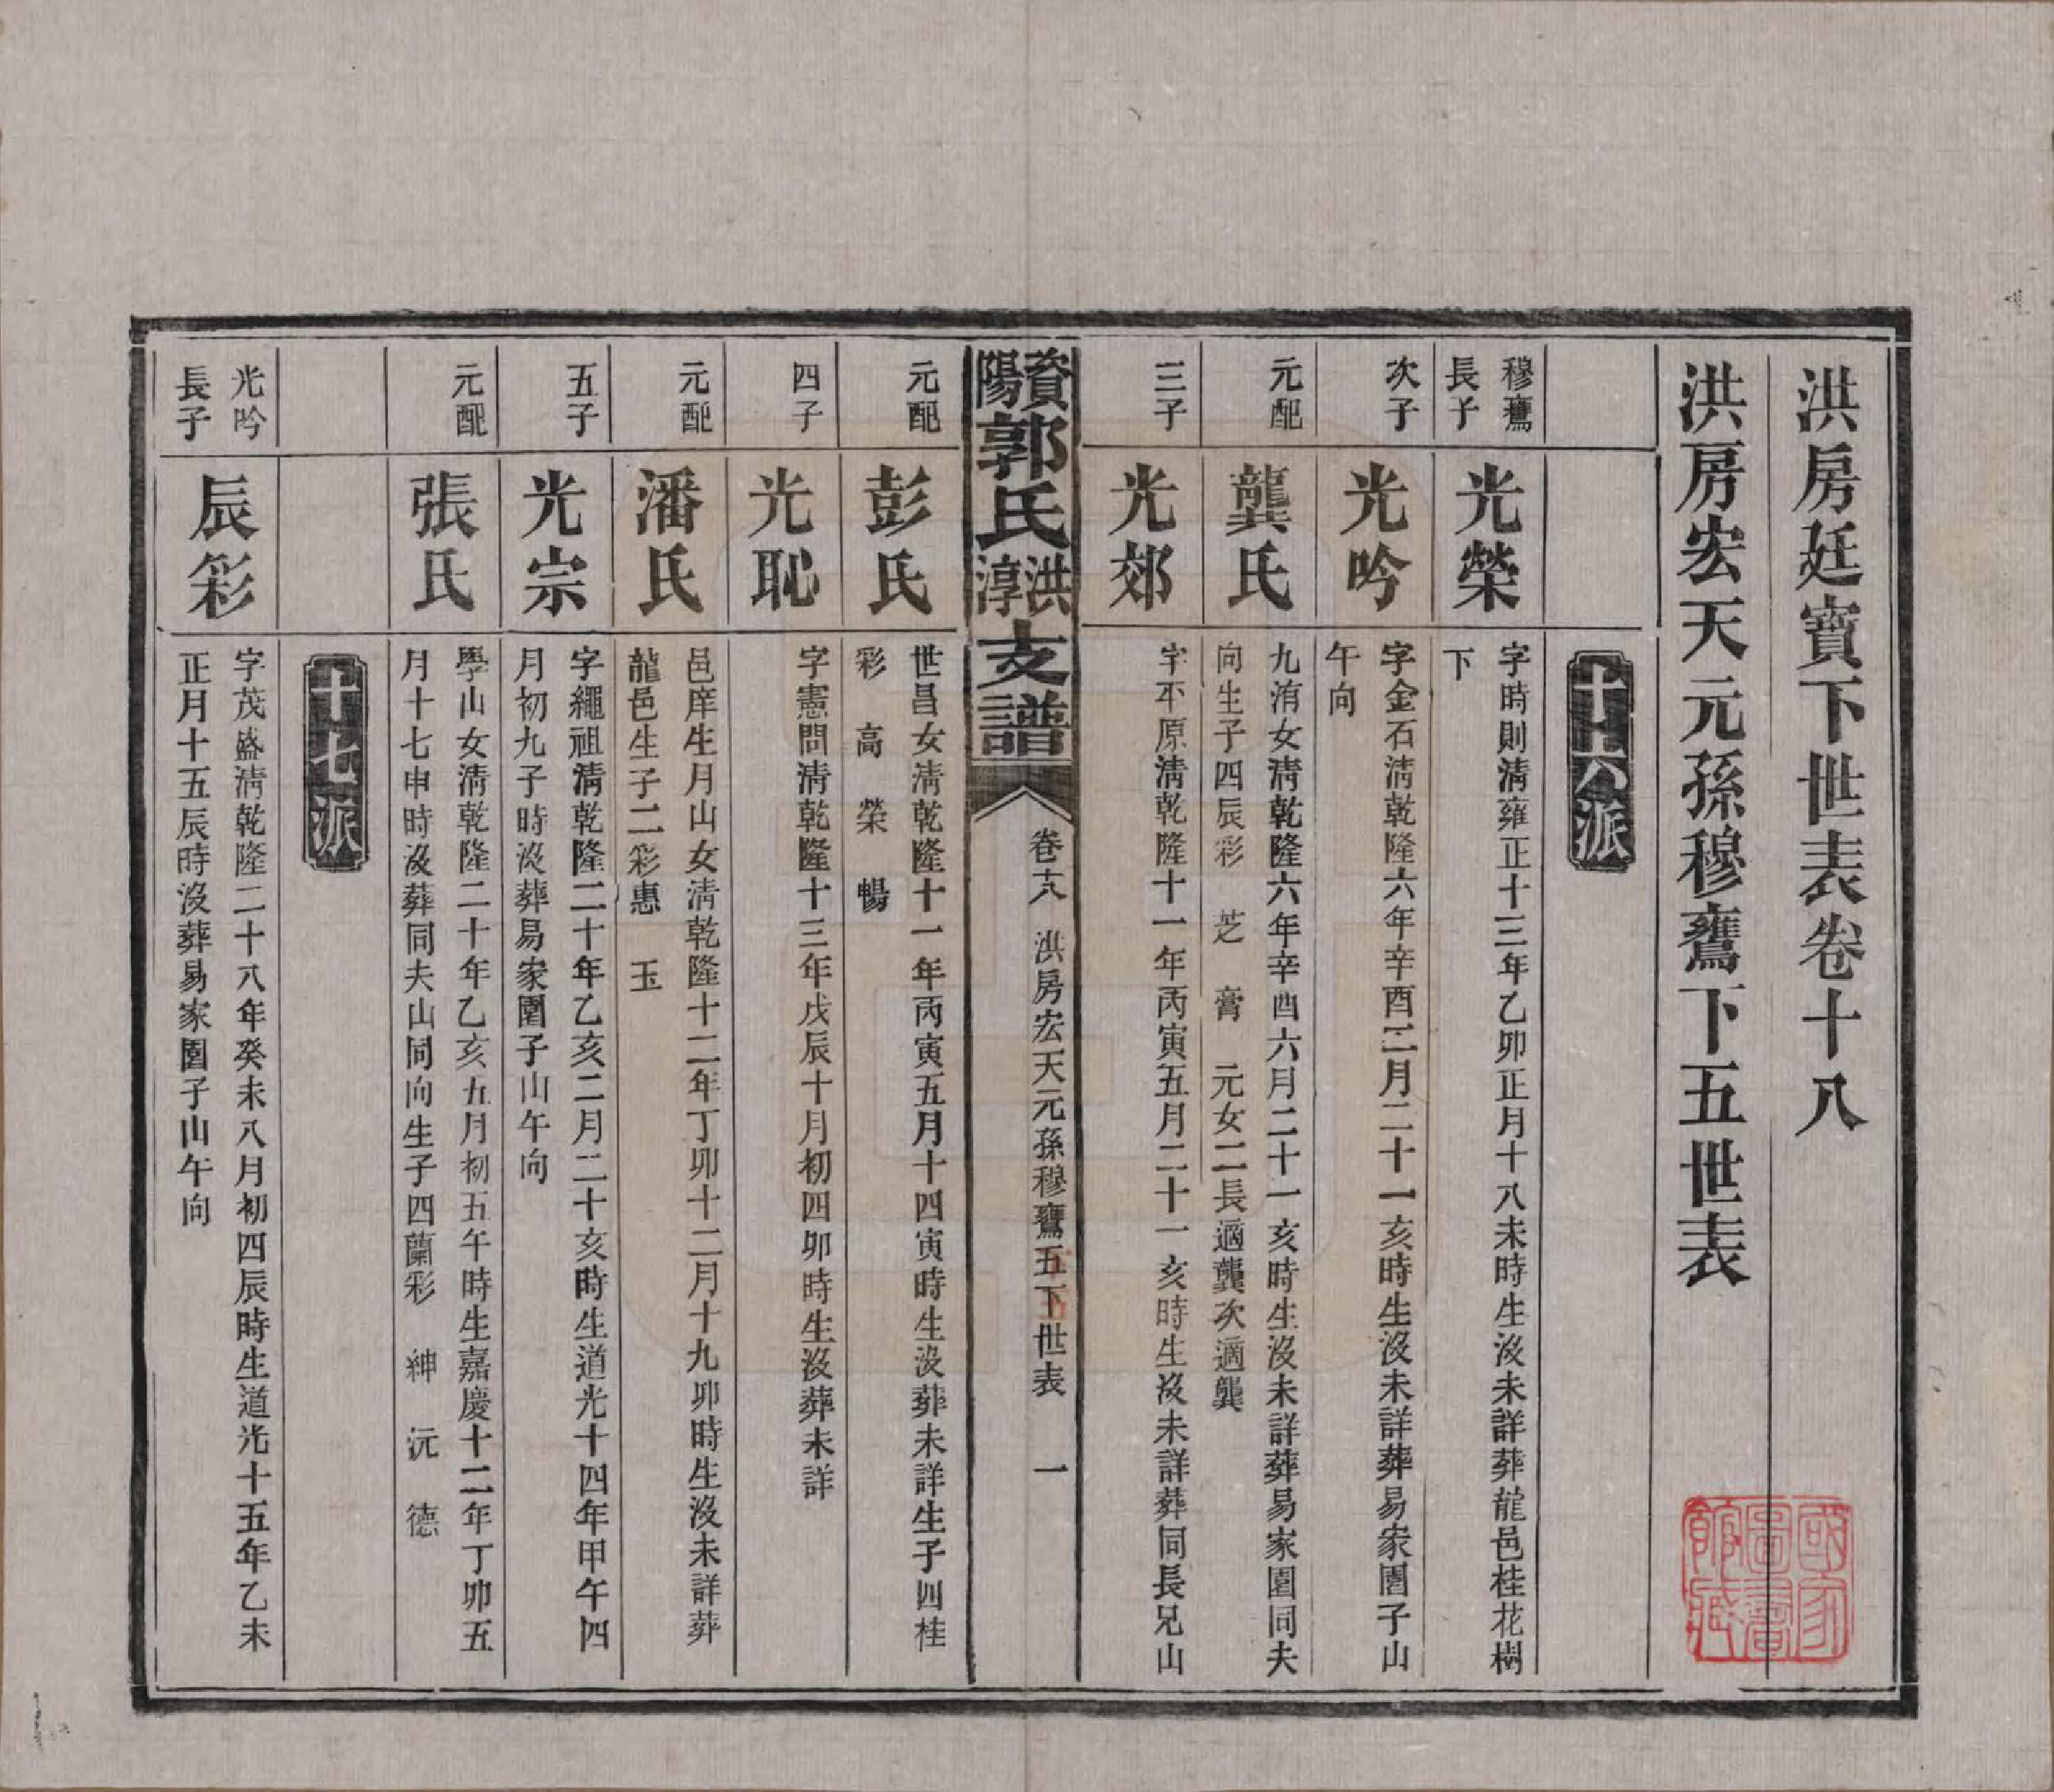 洪房廷寶下世表卷十八
洪房宏天元孫穆鶱下五世表
十六派
穆鶱
長子
光榮
字時則清雍正十三年乙卯正月十八未時生沒未詳葬龍邑桂花樹
下
次子
光吟
字金石清乾隆六年辛酉三月二十一亥時生沒未詳葬易家園子山
午向
元配
龔氏
九洧女清乾隆六年辛酉六月二十一亥時生沒未詳葬易家園同夫
向生子四辰彩 芝 膏 元女二長適龔次適龔
三子
光郊
字平原清乾隆十一年丙寅五月二十一亥時生沒未詳葬同長兄山
資陽郭氏洪淳支譜
卷十八 洪房宏天元孫穆鶱五下世表 一
元配
彭氏
世昌女清乾隆十一年丙寅五月十四寅時生沒葬未詳生子四桂
彩 高 榮 暢
四子
光恥
字憲問清乾隆十三年戊辰十月初四卯時生沒葬未詳
元配
潘氏
邑庠生月山女清乾隆十二年丁卯十二月十九卯時生沒未詳葬
龍邑生子二彩惠 玉
五子
光宗
字繩祖清乾隆二十年乙亥二月二十亥時生道光十四年甲午四
月初九子時沒葬易家園子山午向
元配
張氏
學山女清乾隆二十年乙亥五月初五午時生嘉慶十二年丁卯五
月十七申時沒葬同夫山同向生子四蘭彩 紳 沅 德
十七派
光吟
長子
辰彩
字茂盛清乾隆二十八年癸未八月初四辰時生道光十五年乙未
正月十五辰時沒葬易家園子山午向
國家圖書館藏